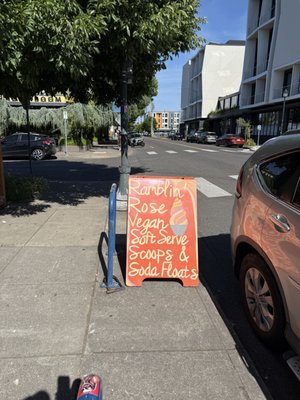 Ramblin'
Rose
Vegan
Soft Serve
Scoops &
Soda Floats